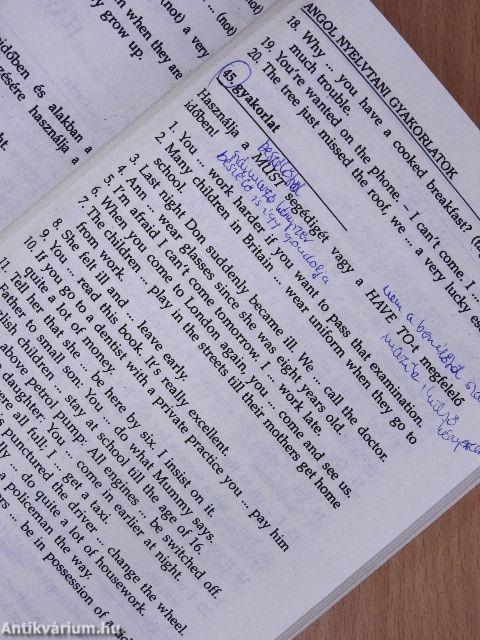 (not) a very
... (not)
when they are
ry grow up.
időben és alakban a
zésére használja a
ANGOL NYELVTANI GYAKORLATOK
18. Why ... you have a cooked breakfast?
much trouble.
19. You're wanted on the phone. – I can't come. I ...
20. The tree just missed the roof, we ... a very lucky es
45. gyakorlat
Használja a MUST segédigét vagy a HAVE TO-t megfelelő
időben!
1. You ... work harder if you want to pass that examination.
2. Many children in Britain ... wear uniform when they go to
school.
3. Last night Don suddenly became ill. We ... call the doctor.
4. Ann ... wear glasses since she was eight years old.
5. I'm afraid I can't come tomorrow. I ... work late.
6. When you come to London again, you ... come and see us.
7. The children ... play in the streets till their mothers get home
from work.
8. She felt ill and ... leave early.
9. You ... read this book. It's really excellent.
10. If you go to a dentist with a private practice you ... pay him
quite a lot of money.
1. Tell her that she ... be here by six. I insist on it.
Father to small son: You ... do what Mummy says.
glish children ... stay at school till the age of 16.
above petrol pump: All engines ... be switched off.
daughter: You ... come in earlier at night.
ere all full. I ... get a taxi.
punctured the driver ... change the wheel.
lly ... do quite a lot of housework.
a policeman the way.
ers ... be in possession of
Antikvárium.hu